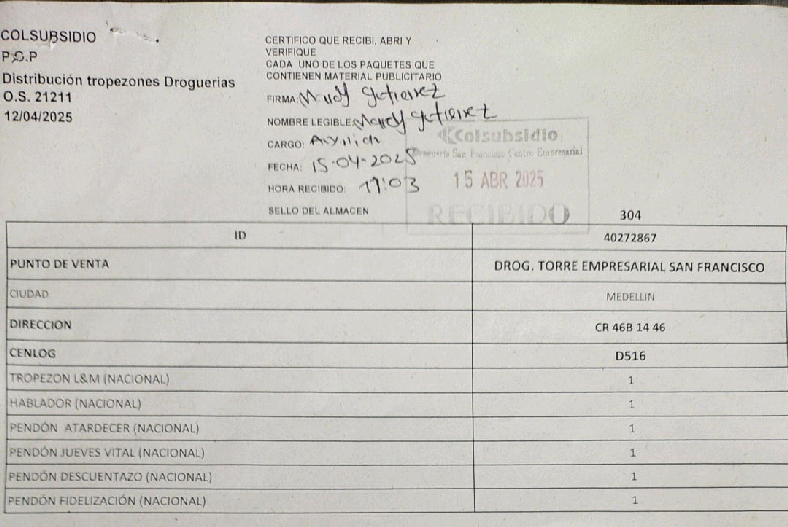 COLSUBSIDIO
P.S.P
Distribución tropezones Droguerias
O.S. 21211
12/04/2025
CERTIFICO QUE RECIBI, ABRI Y
VERIFIQUE
CADA UNO DE LOS PAQUETES QUE
CONTIENEN MATERIAL PUBLICITARIO
FIRMA: Gutierrez
NOMBRE LEGIBLE: Gutierrez
CARGO:
FECHA: 15-04-2025
HORA RECIBIDO: 11:03
SELLO DEL ALMACEN
Colsubsidio
San Francisco Centro Empresarial
15 ABR 2025
RECIBIDO
304
ID 40272867
PUNTO DE VENTA DROG. TORRE EMPRESARIAL SAN FRANCISCO
CIUDAD MEDELLIN
DIRECCION CR 46B 14 46
CENLOG D516
TROPEZON L&M (NACIONAL) 1
HABLADOR (NACIONAL) 1
PENDÓN ATARDECER (NACIONAL) 1
PENDÓN JUEVES VITAL (NACIONAL) 1
PENDÓN DESCUENTAZO (NACIONAL) 1
PENDÓN FIDELIZACIÓN (NACIONAL) 1